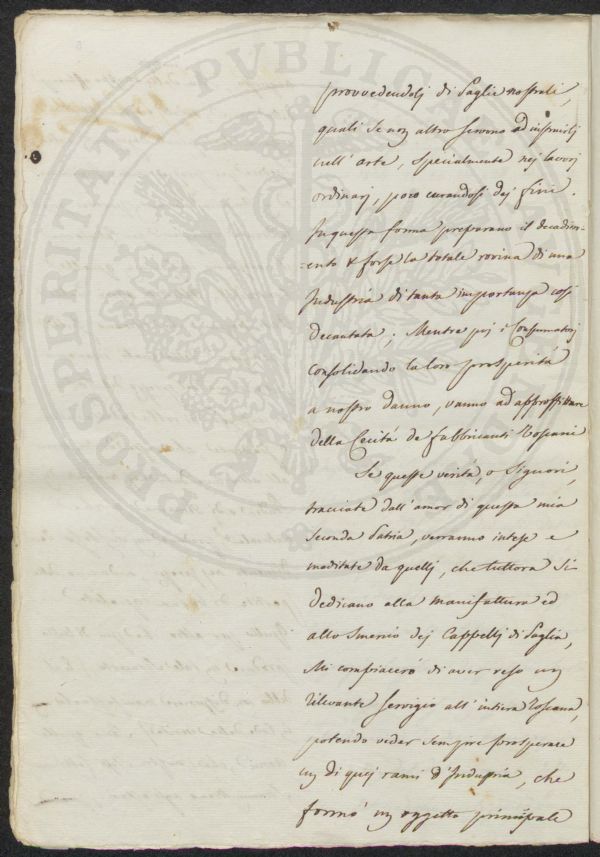 provvedendolj di Paglie nostrali,
quali se non altro servono ad istruirlj
nell' arte, specialmente nej lavorj
ordinarj, poco curandosi dej fini.
In questa forma preparano il decadim-
-ento & forse la totale rovina di una
Industria di tanta importanza così
decantata; Mentre poj i Consumatorj
consolidando la loro prosperità
a nostro danno, vanno ad approffittare
della Cecità de fabbricanti Toscani
Se queste verità, o Signori,
tracciate dall' amor di questa mia
seconda Patria, verranno intese e
meditate da quellj, che tuttora si
dedicano alla manifattura ed
allo smercio dej Cappellj di Paglia,
Mi compiacerò di aver reso un
rilevante servigio all' intiera Toscana,
potendo veder sempre prosperare
un di quej rami d'Industria, che
formò un oggetto principale
PROSPERITATI PUBLICAE